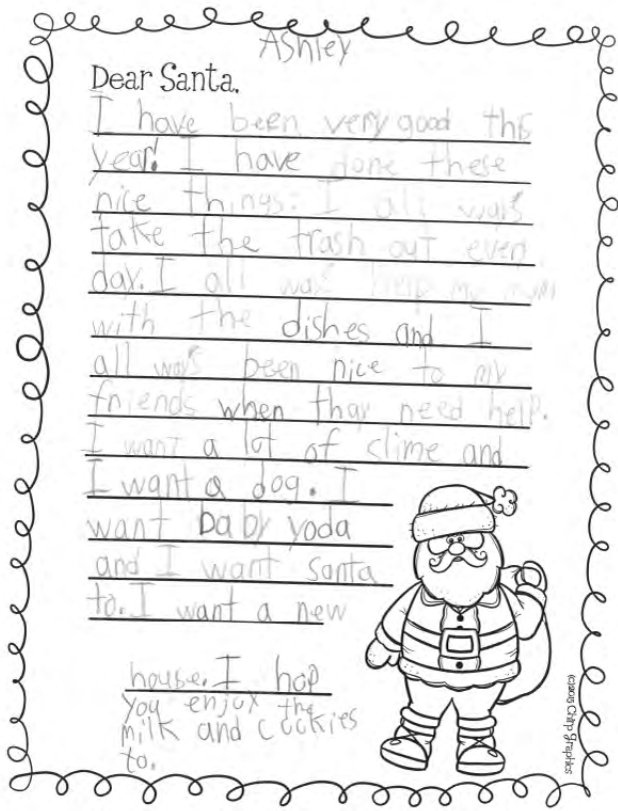 Ashley
Dear Santa,
I have been very good this
year! I have done these
nice things: I all ways
take the trash out every
day. I all ways help my mom
with the dishes and I
all ways been nice to my
friends when thay need help.
I want a lot of clime and
I want a dog. I
want baby yoda
and I want santa
to. I want a new
house. I hop
you enjoy the
milk and cookies
to.
Chirp Graphics